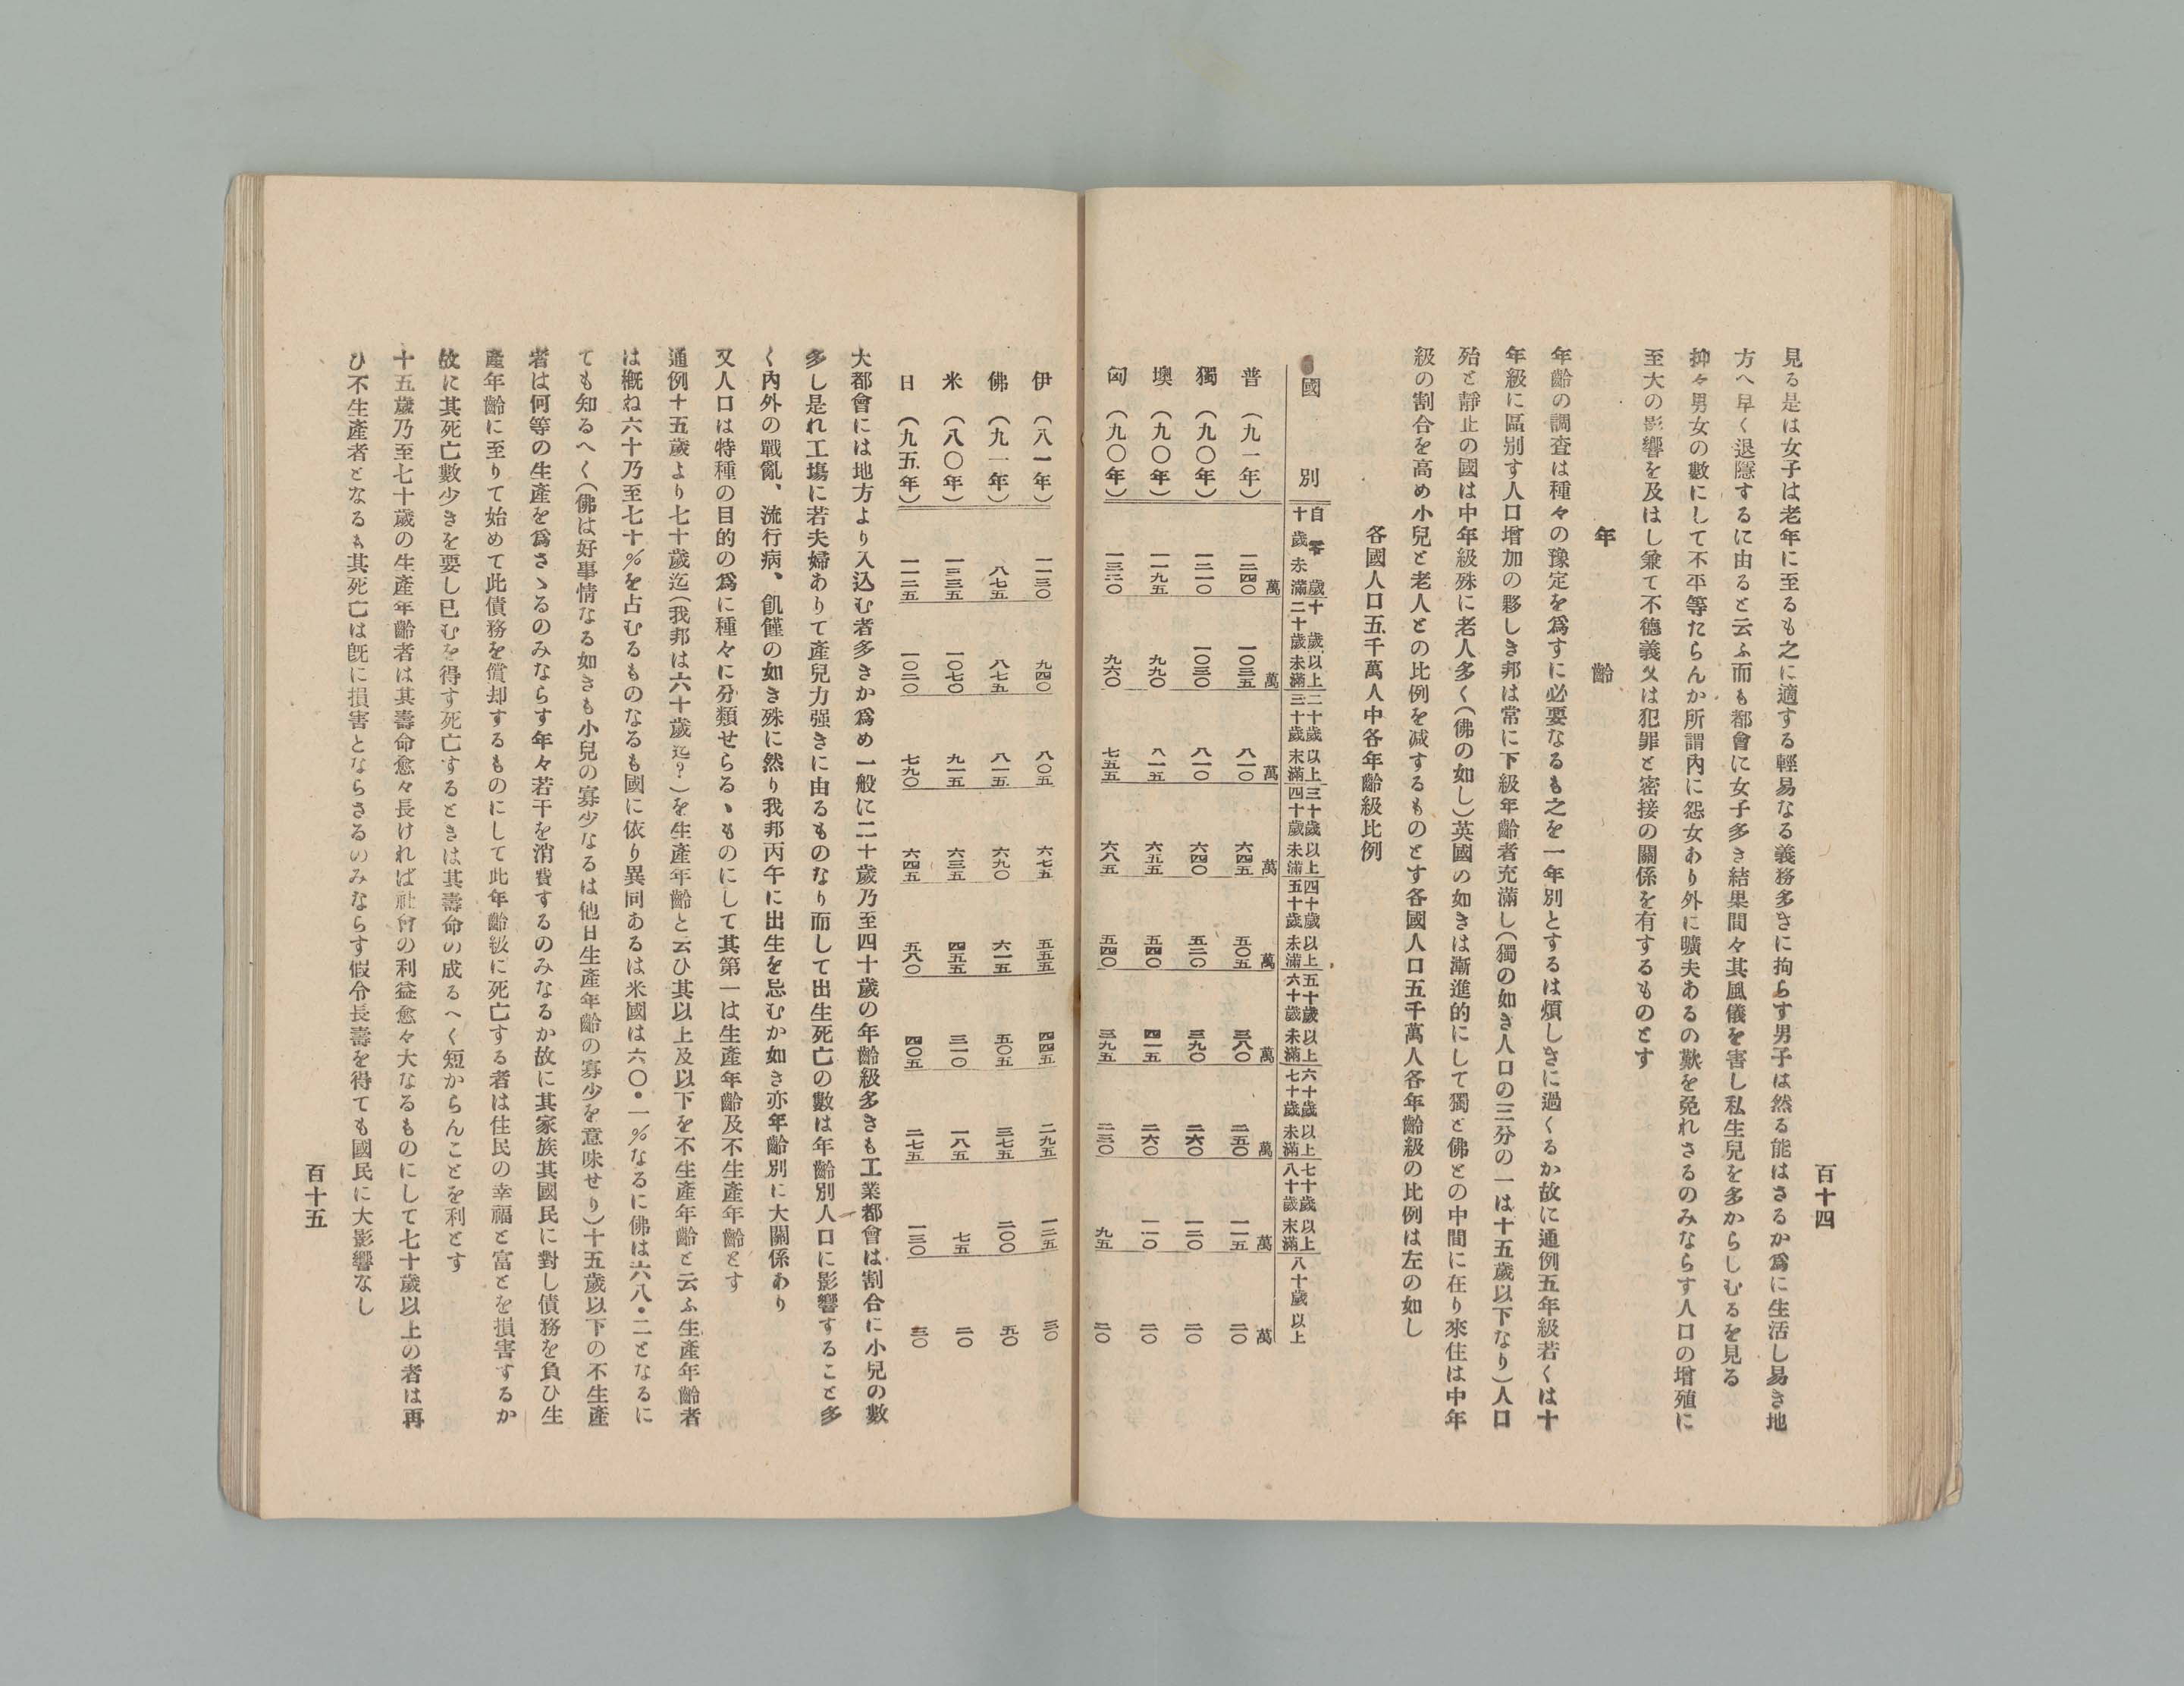 百十四
見る是は女子は老年に至るも之に適する輕易なる義務多きに拘らす男子は然る能はさるか爲に生活し易き地
方へ早く退隱するに由ると云ふ而も都會に女子多き結果間々其風儀を害し私生兒を多からしむるを見る
抑々男女の數にして不平等たらんか所謂內に怨女あり外に曠夫あるの歎を免れさるのみならす人口の增殖に
至大の影響を及はし兼て不德義又は犯罪と密接の關係を有するものとす
年齡
年齡の調査は種々の豫定を爲すに必要なるも之を一年別とするは煩しきに過くるか故に通例五年級若くは十
年級に區別す人口增加の夥しき邦は常に下級年齡者充滿し(獨の如き人口の三分の一は十五歲以下なり)人口
殆と靜止の國は中年級殊に老人多く(佛の如し)英國の如きは漸進的にして獨と佛との中間に在り來住は中年
級の割合を高め小兒と老人との比例を減するものとす各國人口五千萬人各年齡級の比例は左の如し
各國人口五千萬人中各年齡級比例
國別 自零歲十歲未滿 十歲以上二十歲未滿 二十歲以上三十歲未滿 三十歲以上四十歲未滿 四十歲以上五十歲未滿 五十歲以上六十歲未滿 六十歲以上七十歲未滿 七十歲以上八十歲未滿 八十歲以上
普(九一年) 一二四〇萬 一〇三五萬 八一〇萬 六四五萬 五〇五萬 三八〇萬 二五〇萬 一一五萬 二〇萬
獨(九〇年) 一二一〇 一〇三〇 八一〇 六四〇 五二〇 三九〇 二六〇 一二〇 二〇
墺(九〇年) 一一九五 九九〇 八一五 六五五 五四〇 四一五 二六〇 一一〇 二〇
匈(九〇年) 一三二〇 九六〇 七五五 六八五 五四〇 三九五 二三〇 九五 二〇
伊(八一年) 一一三〇 九四〇 八〇五 六七五 五五五 四四五 二九五 一二五 三〇
佛(九一年) 八七五 八七五 八一五 六九〇 六一五 五〇五 三七五 二〇〇 五〇
米(八〇年) 一三三五 一〇七〇 九一五 六三五 四五五 三一〇 一八五 七五 二〇
日(九五年) 一一二五 一〇二〇 七九〇 六四五 五八〇 四〇五 二七五 一三〇 三〇
大都會には地方より入込む者多きか爲め一般に二十歲乃至四十歲の年齡級多きも工業都會は割合に小兒の數
多し是れ工塲に若夫婦ありて產兒力强きに由るものなり而して出生死亡の數は年齡別人口に影響すること多
く內外の戰亂、流行病、飢饉の如き殊に然り我邦丙午に出生を忌むか如き亦年齡別に大關係あり
又人口は特種の目的の爲に種々に分類せらるゝものにして其第一は生產年齡及不生產年齡とす
通例十五歲より七十歲迄(我邦は六十歲迄?)を生產年齡と云ひ其以上及以下を不生產年齡と云ふ生產年齡者
は槪ね六十乃至七十%を占むるものなるも國に依り異同あるは米國は六〇・一%なるに佛は六八・二となるに
ても知るへく(佛は好事情なる如きも小兒の寡少なるは他日生產年齡の寡少を意味せり)十五歲以下の不生產
者は何等の生產を爲さゝるのみならす年々若干を消費するのみなるか故に其家族其國民に對し債務を負ひ生
產年齡に至りて始めて此債務を償却するものにして此年齡級に死亡する者は住民の幸福と富とを損害するか
故に其死亡數少きを要し已むを得す死亡するときは其壽命の成るへく短からんことを利とす
十五歲乃至七十歲の生產年齡者は其壽命愈々長ければ社會の利益愈々大なるものにして七十歲以上の者は再
ひ不生產者となるも其死亡は旣に損害とならさるのみならす假令長壽を得ても國民に大影響なし
百十五